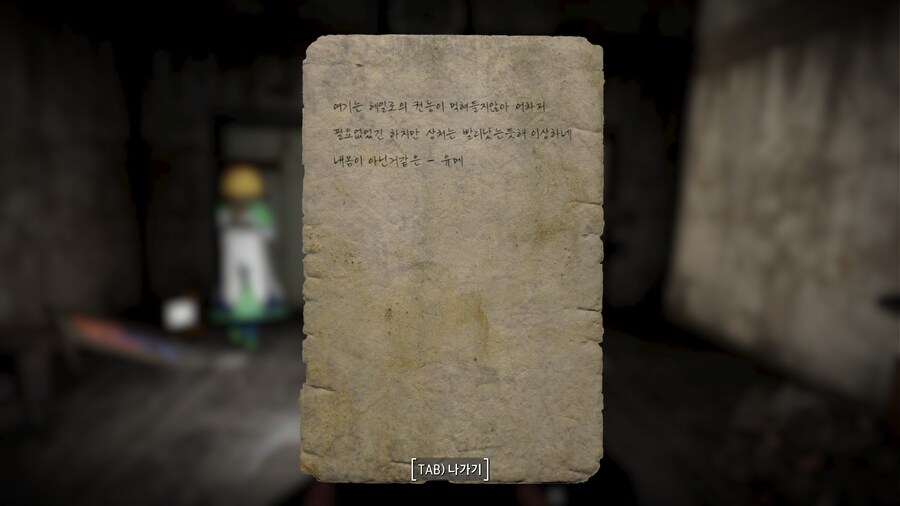 여기는 헤일로의 권능이 먹혀들지않아 어차피
필요없었긴 하지만 상처는 빨리낫는듯해 이상하네
내몸이 아닌거같은 - 유메
[TAB) 나가기]